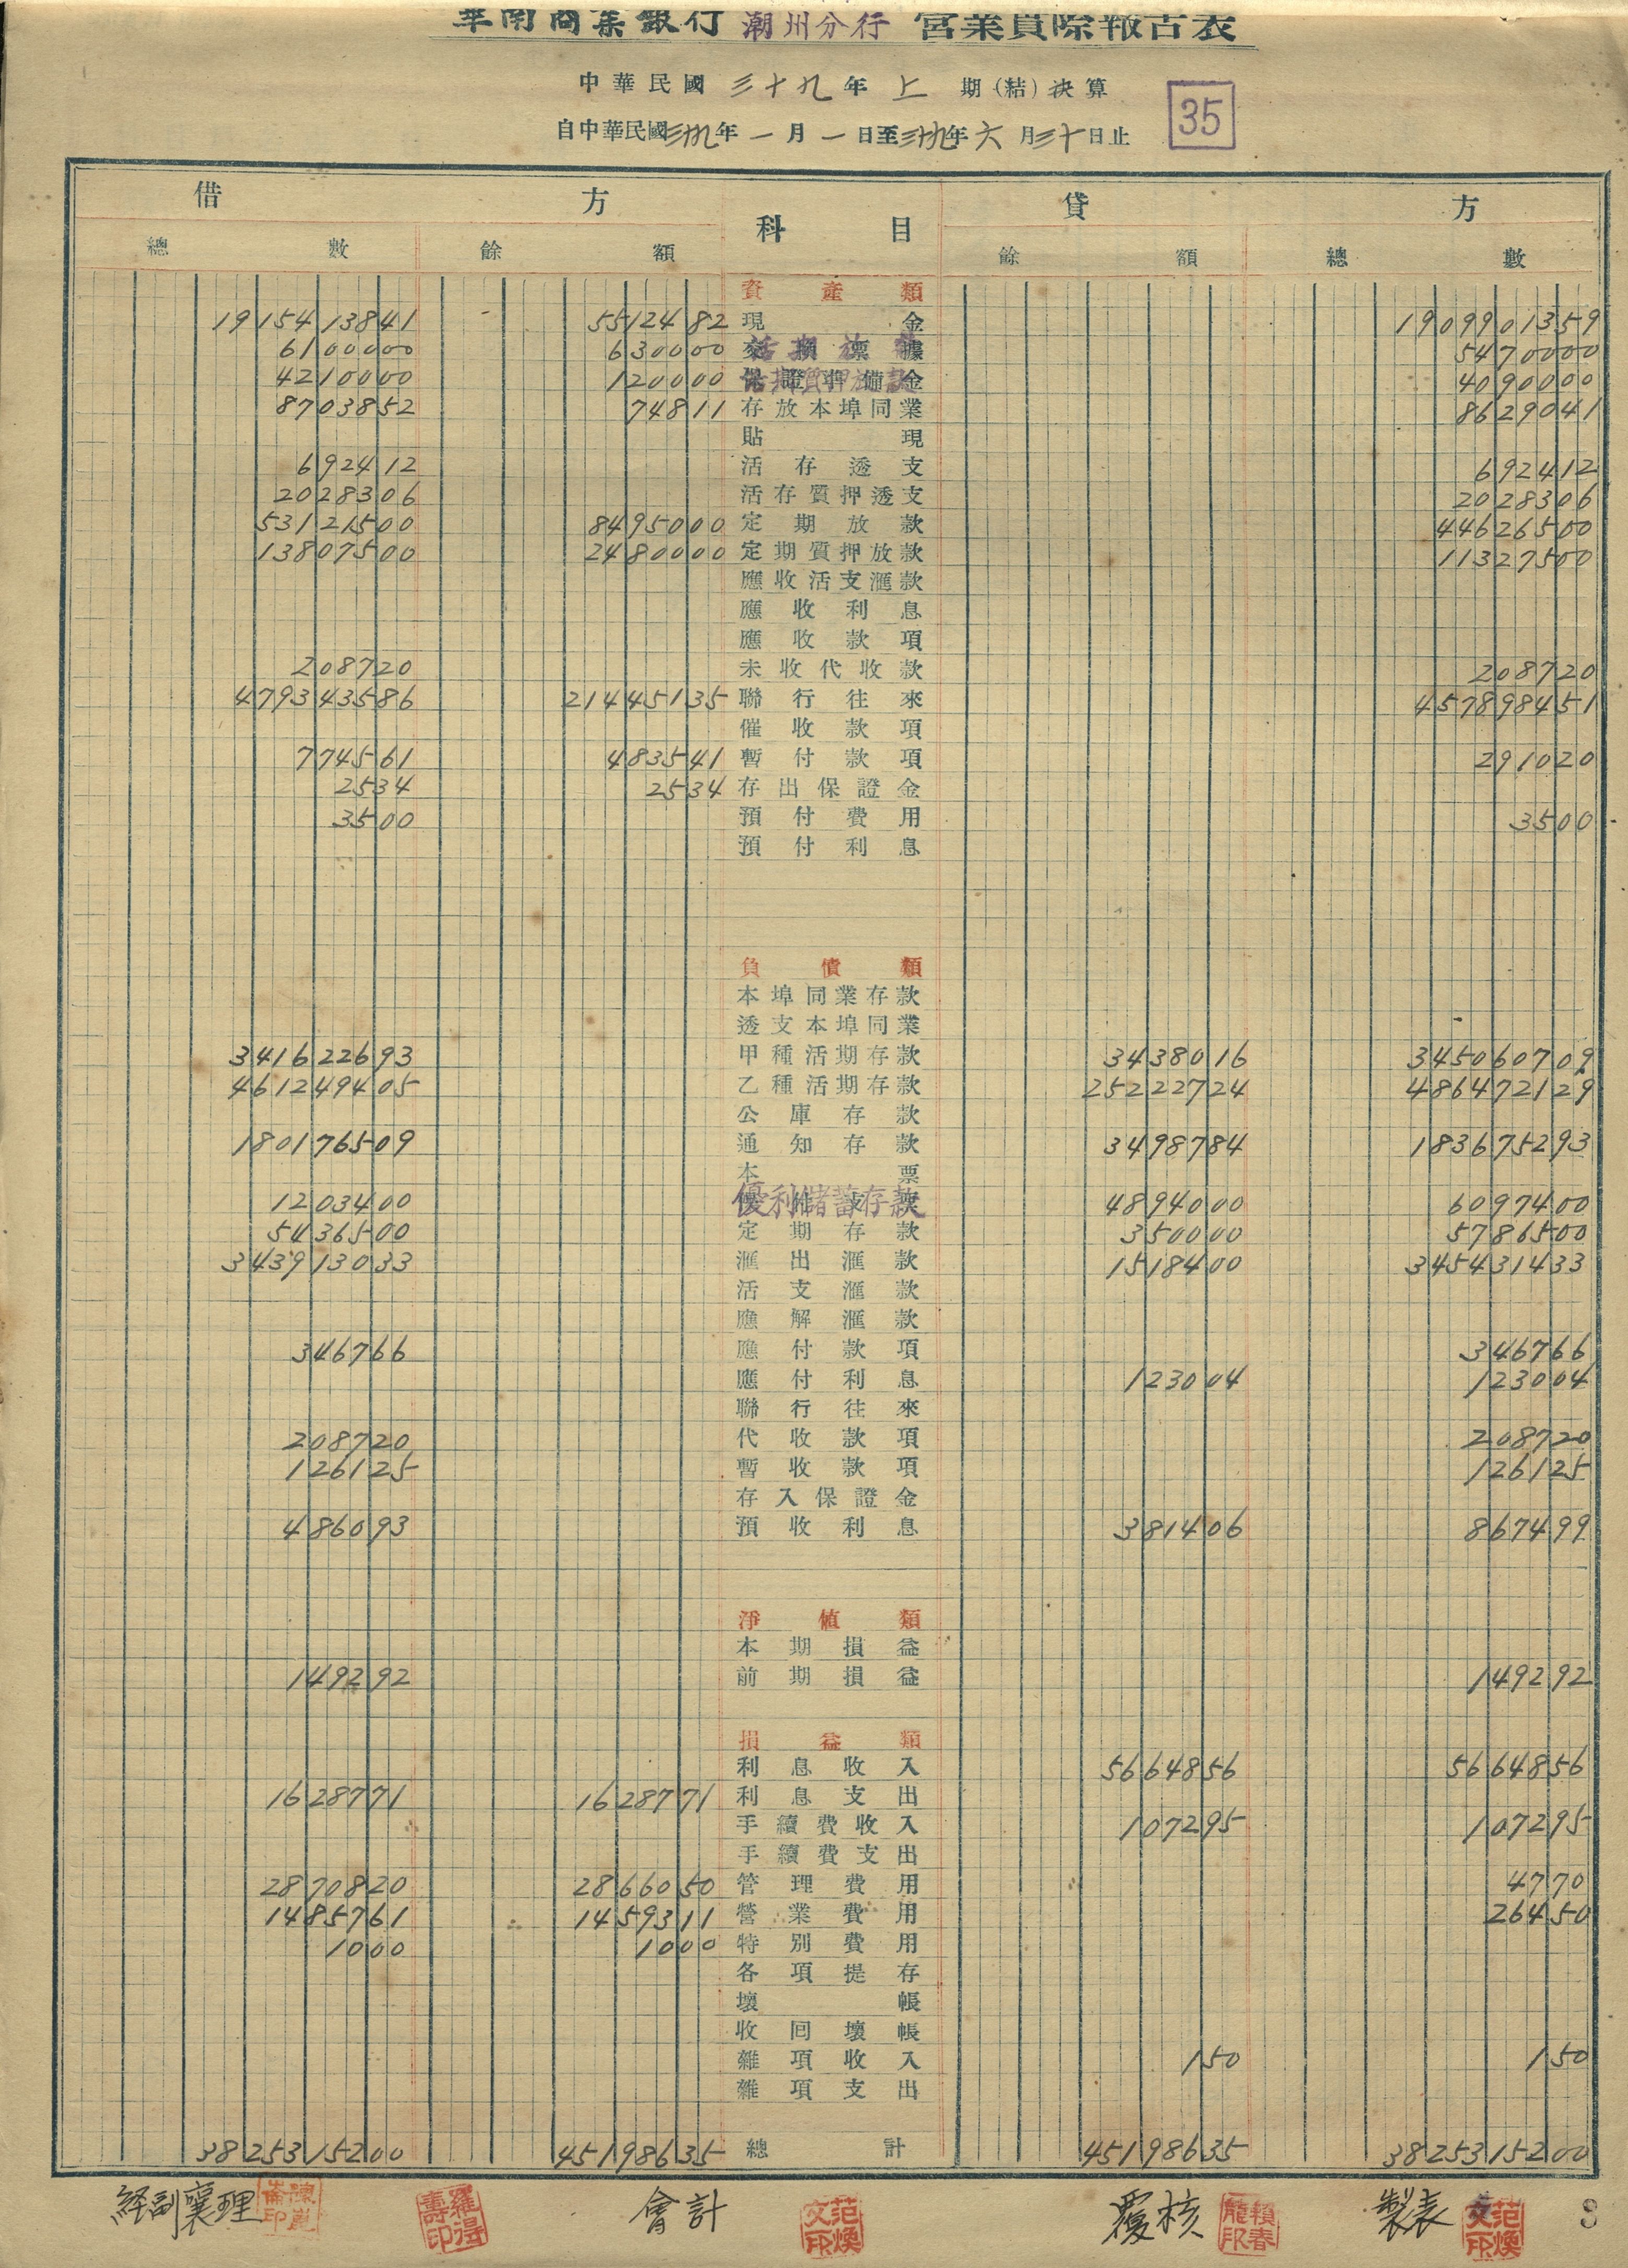 華南商業銀行 潮州分行 營業實際報告表
中華民國 三十九 年 上 期(結)決算
35
自中華民國三十九年 一 月 一 日至三十九年 六 月三十日止
借 方 科 目 貸 方
總 數 餘 額 餘 額 總 數
資產類
1915413841 5512482 現金 1909901359
6100000 630000 活期放款 5470000
4210000 120000 活期質押放款 4090000
8703852 74811 存放本埠同業 8629041
貼現
692412 活存透支 692412
2028306 活存質押透支 2028306
53121500 8495000 定期放款 44626500
13807500 2480000 定期質押放款 11327500
應收活支滙款
應收利息
應收款項
208720 未收代收款 208720
479343586 21445135 聯行往來 457898451
催收款項
774561 483541 暫付款項 291020
2534 2534 存出保證金
3500 預付費用 3500
預付利息
負債類
本埠同業存款
透支本埠同業
341622693 甲種活期存款 3438016 345060709
461249405 乙種活期存款 25222724 486472129
公庫存款
180176509 通知存款 3498784 183675293
本票
1203400 優利儲蓄存款 4894000 6097400
5436500 定期存款 350000 5786500
343913033 滙出滙款 1518400 345431433
活支滙款
應解滙款
346766 應付款項 346766
應付利息 123004 123004
聯行往來
208720 代收款項 208720
126125 暫收款項 126125
存入保證金
486093 預收利息 381406 867499
淨值類
本期損益
149292 前期損益 149292
損益類
利息收入 5664856 5664856
1628771 1628771 利息支出
手續費收入 107295 107295
手續費支出
2870820 2866050 管理費用 4770
1485761 1459311 營業費用 26450
1000 1000 特別費用
各項提存
壞帳
收回壞帳
雜項收入 150 150
雜項支出
3825315200 45198635 總計 45198635 3825315200
経副襄理 羅得壽印 會計 范煥文印 覆核 賴春龍印 製表 范煥文印